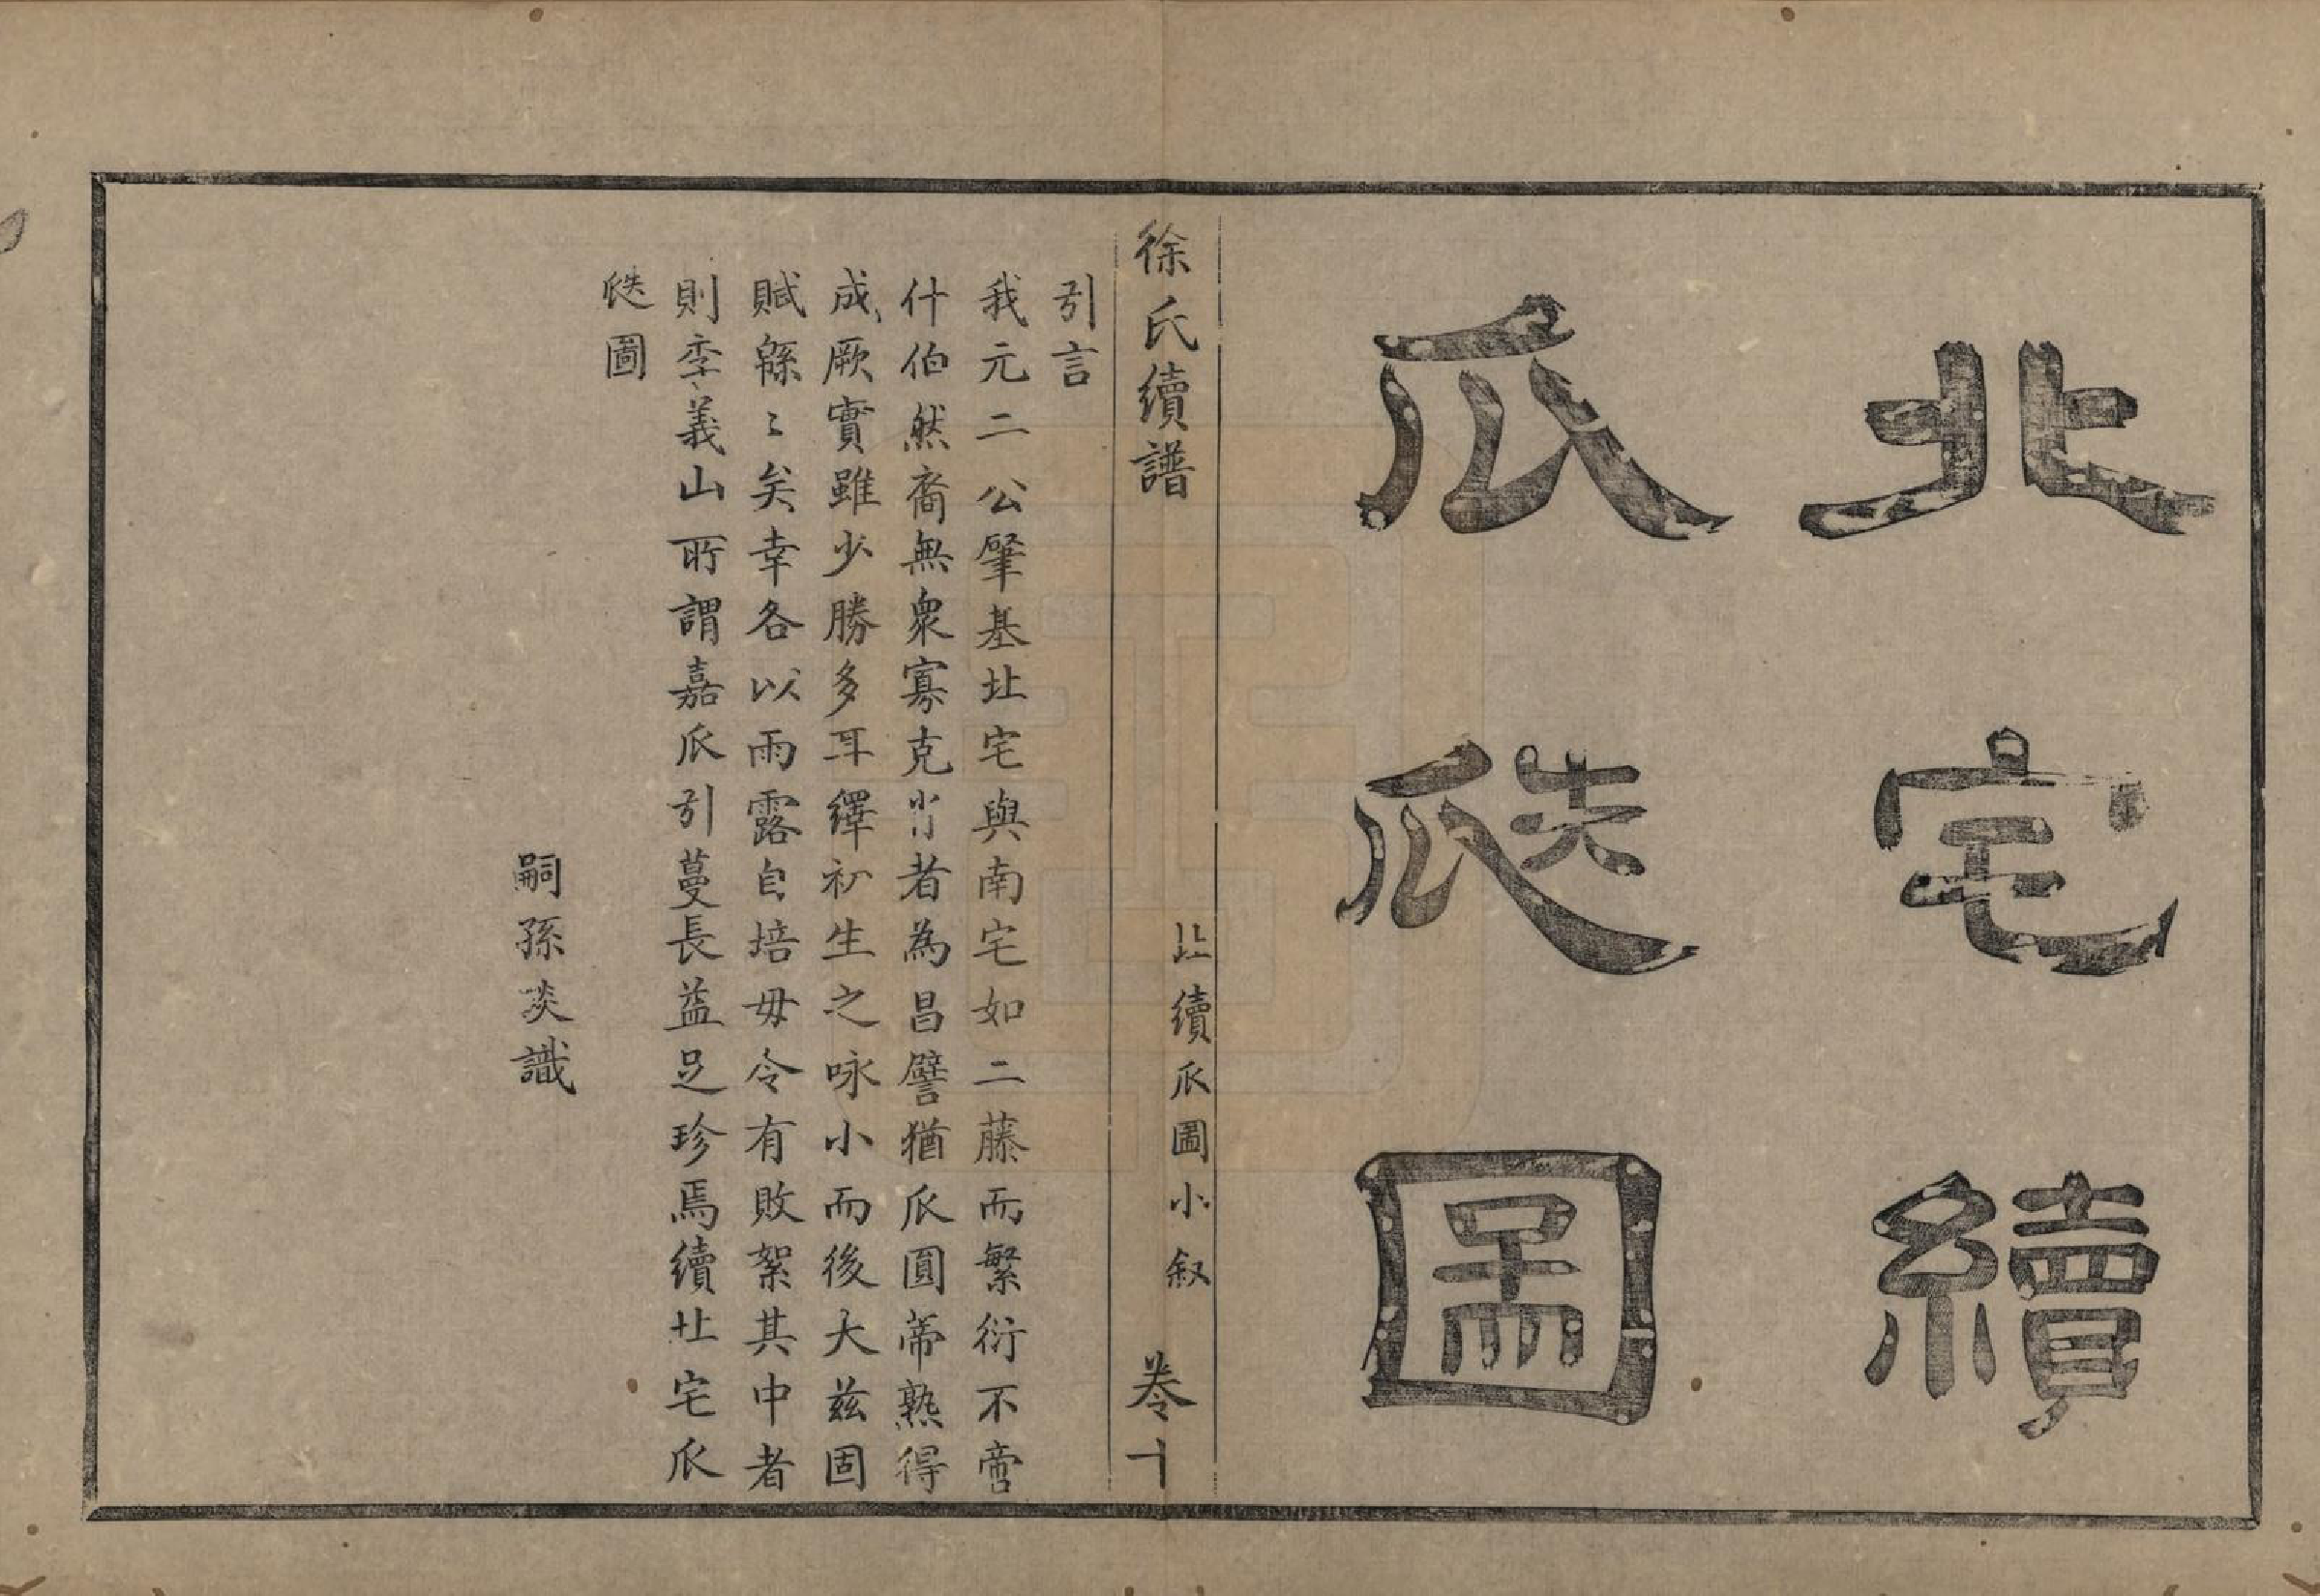 北宅續
瓜瓞圖
徐氏續譜
北續瓜圖小叙
卷十
引言
我元二公肇基北宅與南宅如二藤而繁衍不啻
什伯然裔無衆寡克肖者為昌譬猶瓜圓蒂熟得
成厥實雖少勝多耳繹初生之咏小而後大茲固
賦緜〻矣幸各以雨露自培毋令有敗絮其中者
則李義山所謂嘉瓜引蔓長益足珍焉續北宅瓜
瓞圖
嗣孫炎識